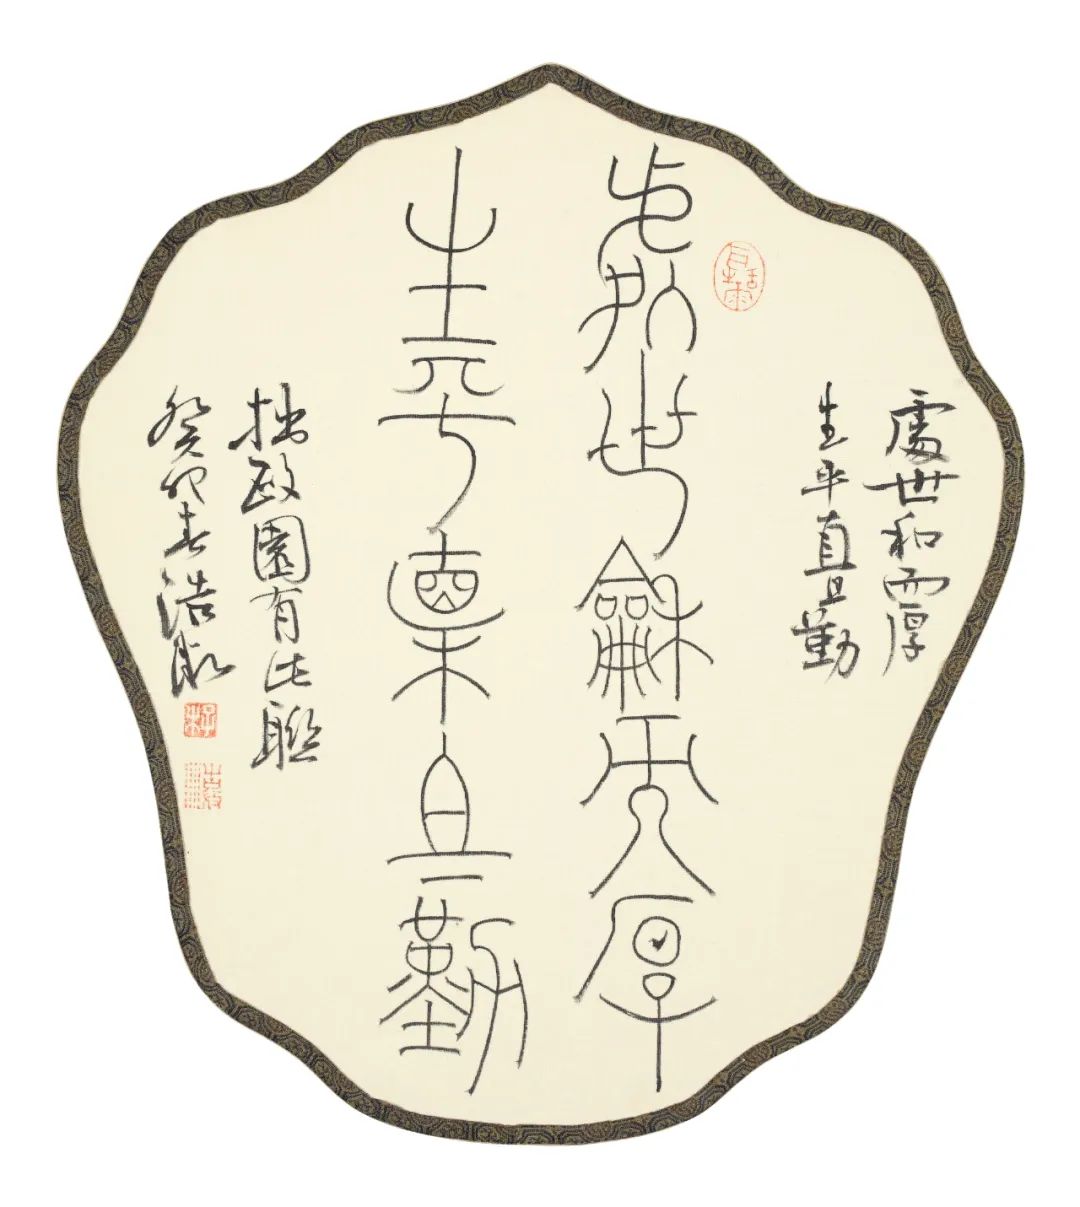 處世和而厚
生平直且勤
處世龢而厚
生平直且勤
拙政園有此聯
癸卯春浩